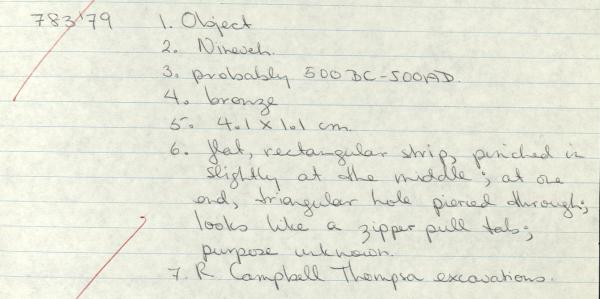 783'79 1. Object
2. Nineveh.
3. probably 500 BC-500AD.
4. bronze
5. 4.1 x 1.1 cm.
6. flat, rectangular strip, pinched in
slightly at the middle; at one
end, triangular hole pierced through;
looks like a zipper pull tab;
purpose unknown.
7. R Campbell Thompson excavations.